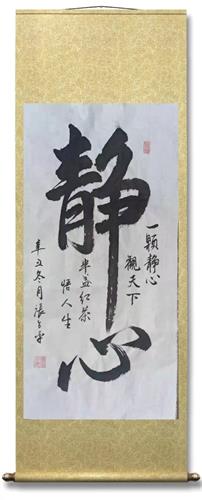 静心
一颗静心
观天下
半盏红茶
悟人生
辛丑冬月